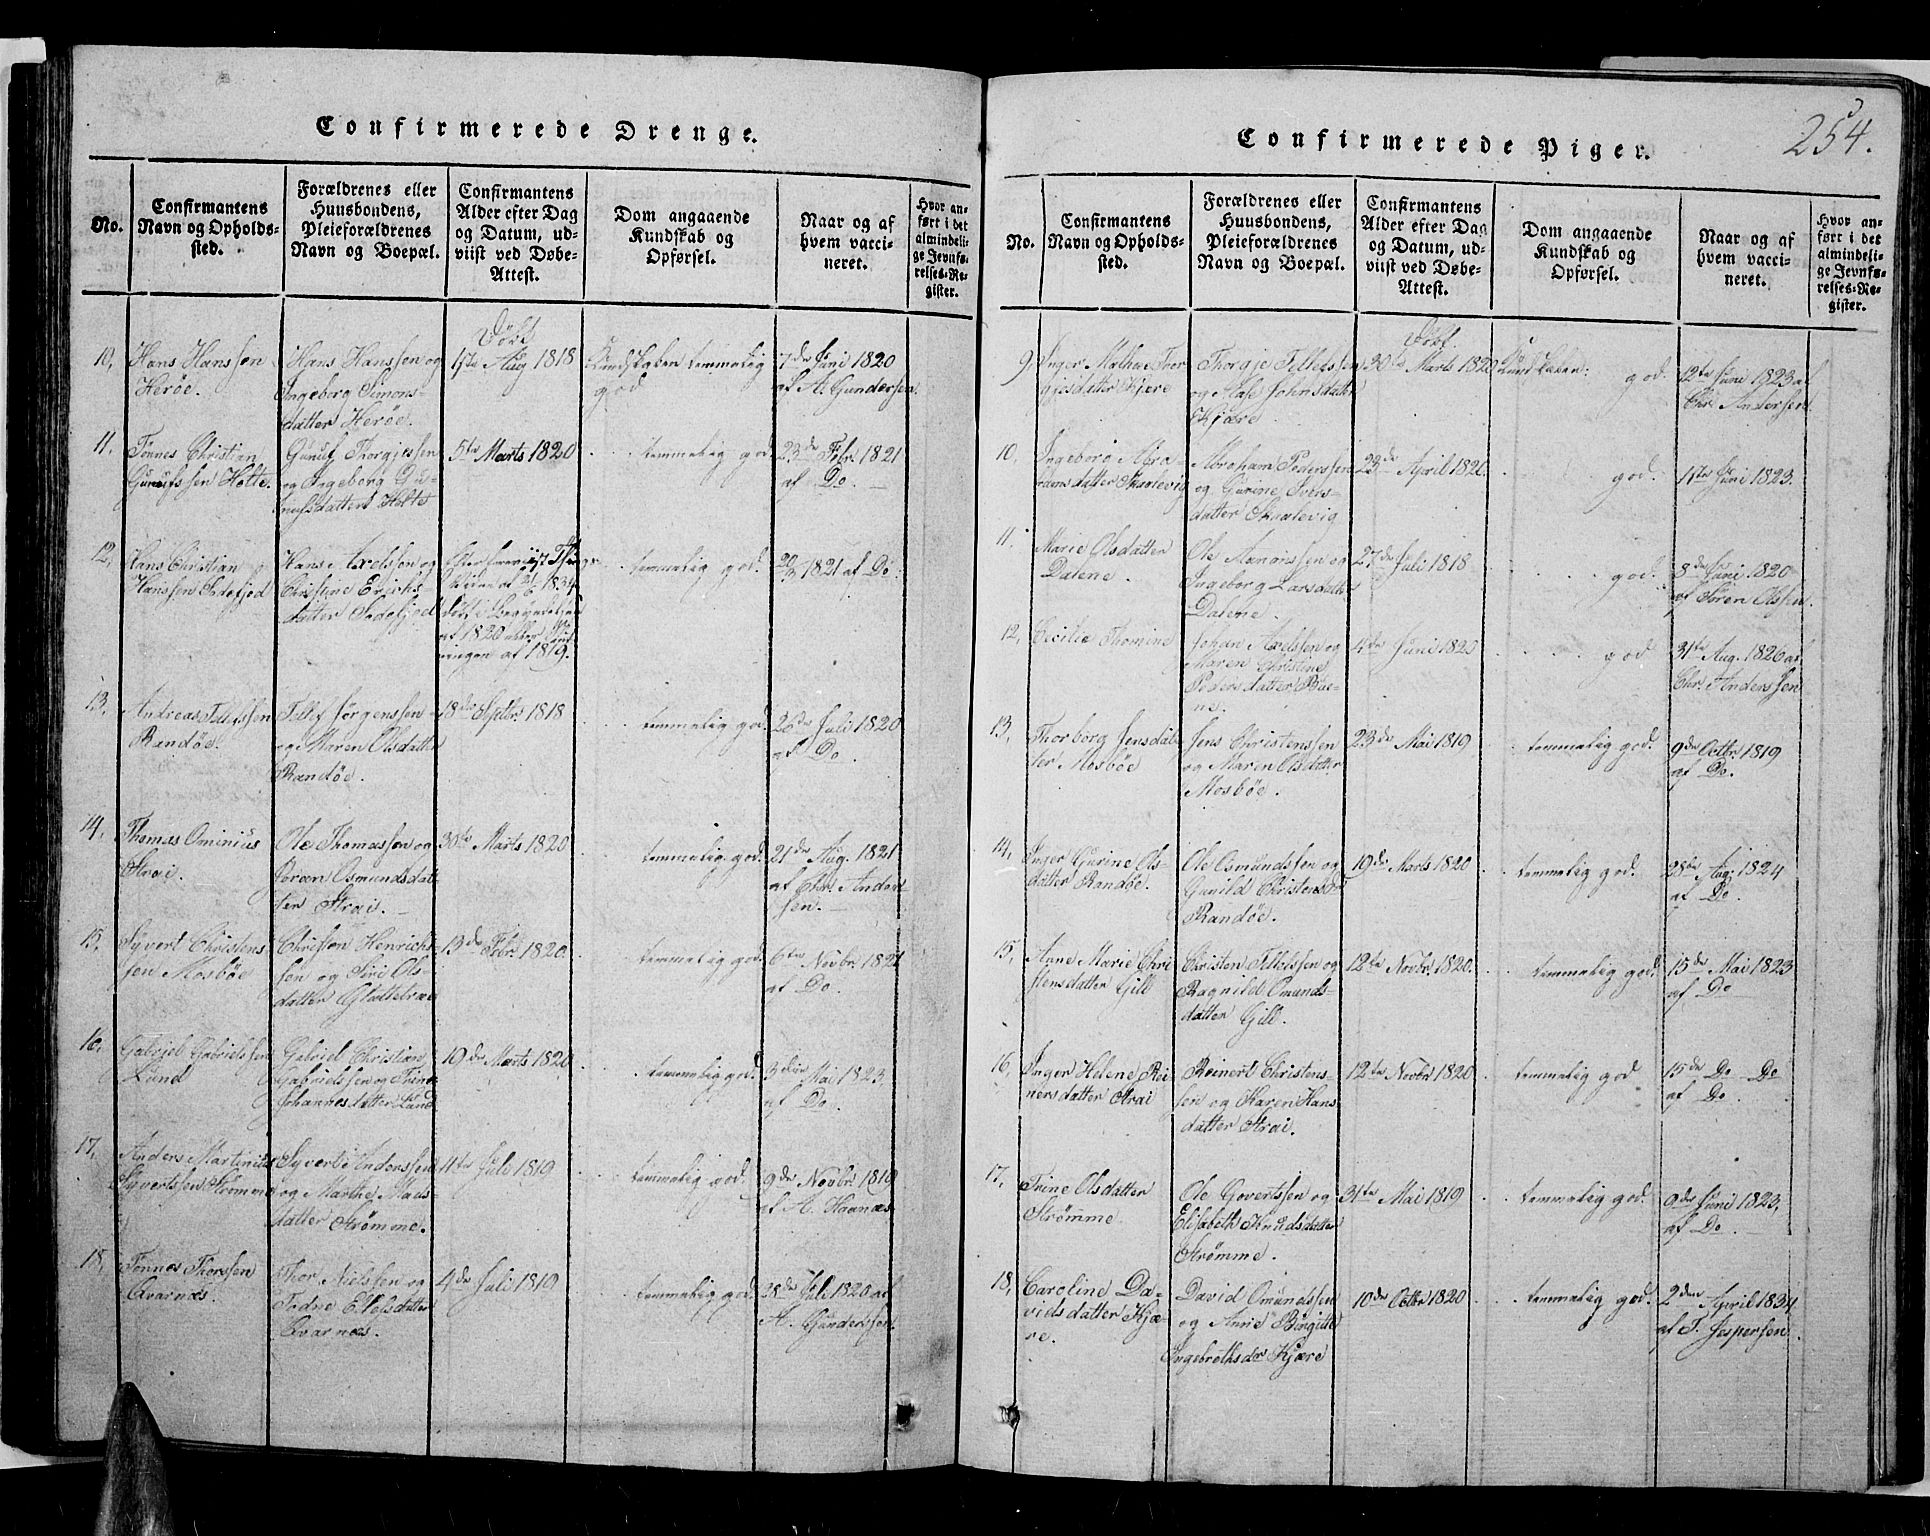 Confirmerede Drenge.
No.
Confirmantens
Navn og Opholds-
sted.
Forældrenes eller
Huusbondens,
Pleieforældrenes
Navn og Boepæl.
Confirmantens
Alder efter Dag
og Datum, ud-
viist ved Døbe-
Attest.
Dom angaaende
Kundskab og
Opførsel.
Naar og af
hvem vacci-
neret.
Hvor an-
ført i det
almindeli-
ge Jevnfø-
relses-Re-
gister.
10, Hans Hanssen
Herøe.
Hans Hanssen og
Ingeborg Simons-
datter Herøe.
Døbt
Aug 1818
Kundskaben temmelig
god
7de Juni 1820
af A. Gundersen.
11. Tønnes Christian
Holte.
Thorgjessen
og Ingeborg
Holte
5te Marts 1820
temmelig god
23de Febr. 1821
af Do.
12, Hans Christian
Hanssen
Hans Axelssen og
Christine Erichs
datter
i Begyndelsen
af 1820 eller
af 1819.
temmelig god.
1821 af Do.
13. Andreas Tellefssen
Randøe.
Tellef Jørgenssen
og Maren Olsdatter
Randøe.
18de Septbr. 1818
temmelig god.
26de Juli 1820
af Do.
14. Thomas Ominius
Strai.
Ole Thomassen og
Osmundsdat-
ter Strai.
30te Marts 1820
temmelig god.
21de Aug. 1821
af Chr. Anders-
sen.
15, Syvert Christens
sen Mosbøe
Christen Henrichs-
sen og Siri Ols-
datter
13de Febr. 1820.
temmelig god
6te Novbr. 1821
af Do.
16. Gabriel Gabrielssen
Lund
Gabriel Christian
Gabrielssen og Trine
Johannesdatter Lund
19de Marts 1820
temmelig god.
3die Mai 1823.
af Do.
17, Anders Martinius
Syvertssen Strømme
Syvert Anderssen
og Marthe Mads-
datter Strømme.
4te Juli 1819
temmelig god
9de Novbr. 1819
af A. Haanæs.
18, Tønnes Thorssen
Qvarnæs.
Thor Nielssen og
Qvarnæs.
4de Juli 1819
temmelig god
28de Juli 1820 af
A. Gunderssen.
Confirmerede Piger.
254.
No.
Confirmantens
Navn og Opholds-
sted.
Forældrenes eller
Huusbondens,
Pleieforældrenes
Navn og Boepæl.
Confirmantens
Alder efter Dag
og Datum, ud-
viist ved Døbe-
Attest.
Dom angaaende
Kundskab og
Opførsel.
Naar og af
hvem vacci-
neret.
Hvor an-
ført i det
almindeli-
ge Jevnfø-
relses-Re-
gister.
9, Inger Mathea Thor
gjesdatter Kjære
Thorgje Tellefssen
og Aase Johnsdatter
Kjære
Døbt.
30te Marts 1820
Kundskaben: god.
12te Juni 1823 af
Chr. Anderssen
10, Ingeborg Abra-
hamsdatter Skaalevig
Abraham Pederssen
og Gurine Ivers-
datter Skaalevig
23de April 1820.
god.
11te Juni 1823.
11. Marie Olsdatter
Dalene.
Ole og
Ingeborg Larsdatter
Dalene
27de Juli 1818
god.
8de Juni 1820
af Søren Olssen.
12, Cecilie Thomine
Johan Axelssen og
Maren Christine
Pedersdatter Bue-
ne.
4de Juni 1820
god
31te Aug. 1826 af
Chr. Anderssen
13, Thorborg Jensdat-
ter Mosbøe
Jens Christenssen
og Maren Olsdatter
Mosbøe.
23de Mai 1819
temmelig god.
9de Octbr. 1819
af Do.
14, Inger Gurine Ols-
datter Randøe.
Ole Osmundssen og
Gunild Christensdr
Randøe.
19de Marts 1820
temmelig god.
28de Aug. 1824
af Do.
15, Anne Marie Chri
stensdatter Gill
Christen Tellefssen og
Ragnild Omunds-
datter Gill.
12te Novbr. 1820.
temmelig god.
15de Mai 1823
af Do
16, Inger Helene Rei
nersdatter Strai
Reinert Christens-
sen og Karen Hans
datter Strai.
12te Novbr. 1820
temmelig god
15de Do Do
af Do.
17, Trine Olsdatter
Strømme
Ole Govertssen og
Elisabeth Knudsdatter
Strømme.
31te Mai 1819
temmelig god.
9de Juni 1823,
af Do.
18, Caroline Da-
vidsdatter Kjæ-
re.
David Omundssen
og Anne Birgitte
Ingebrethsdr Kjære
10de Octbr 1820
temmelig god.
2den April 1834
af T. Jesperssen.